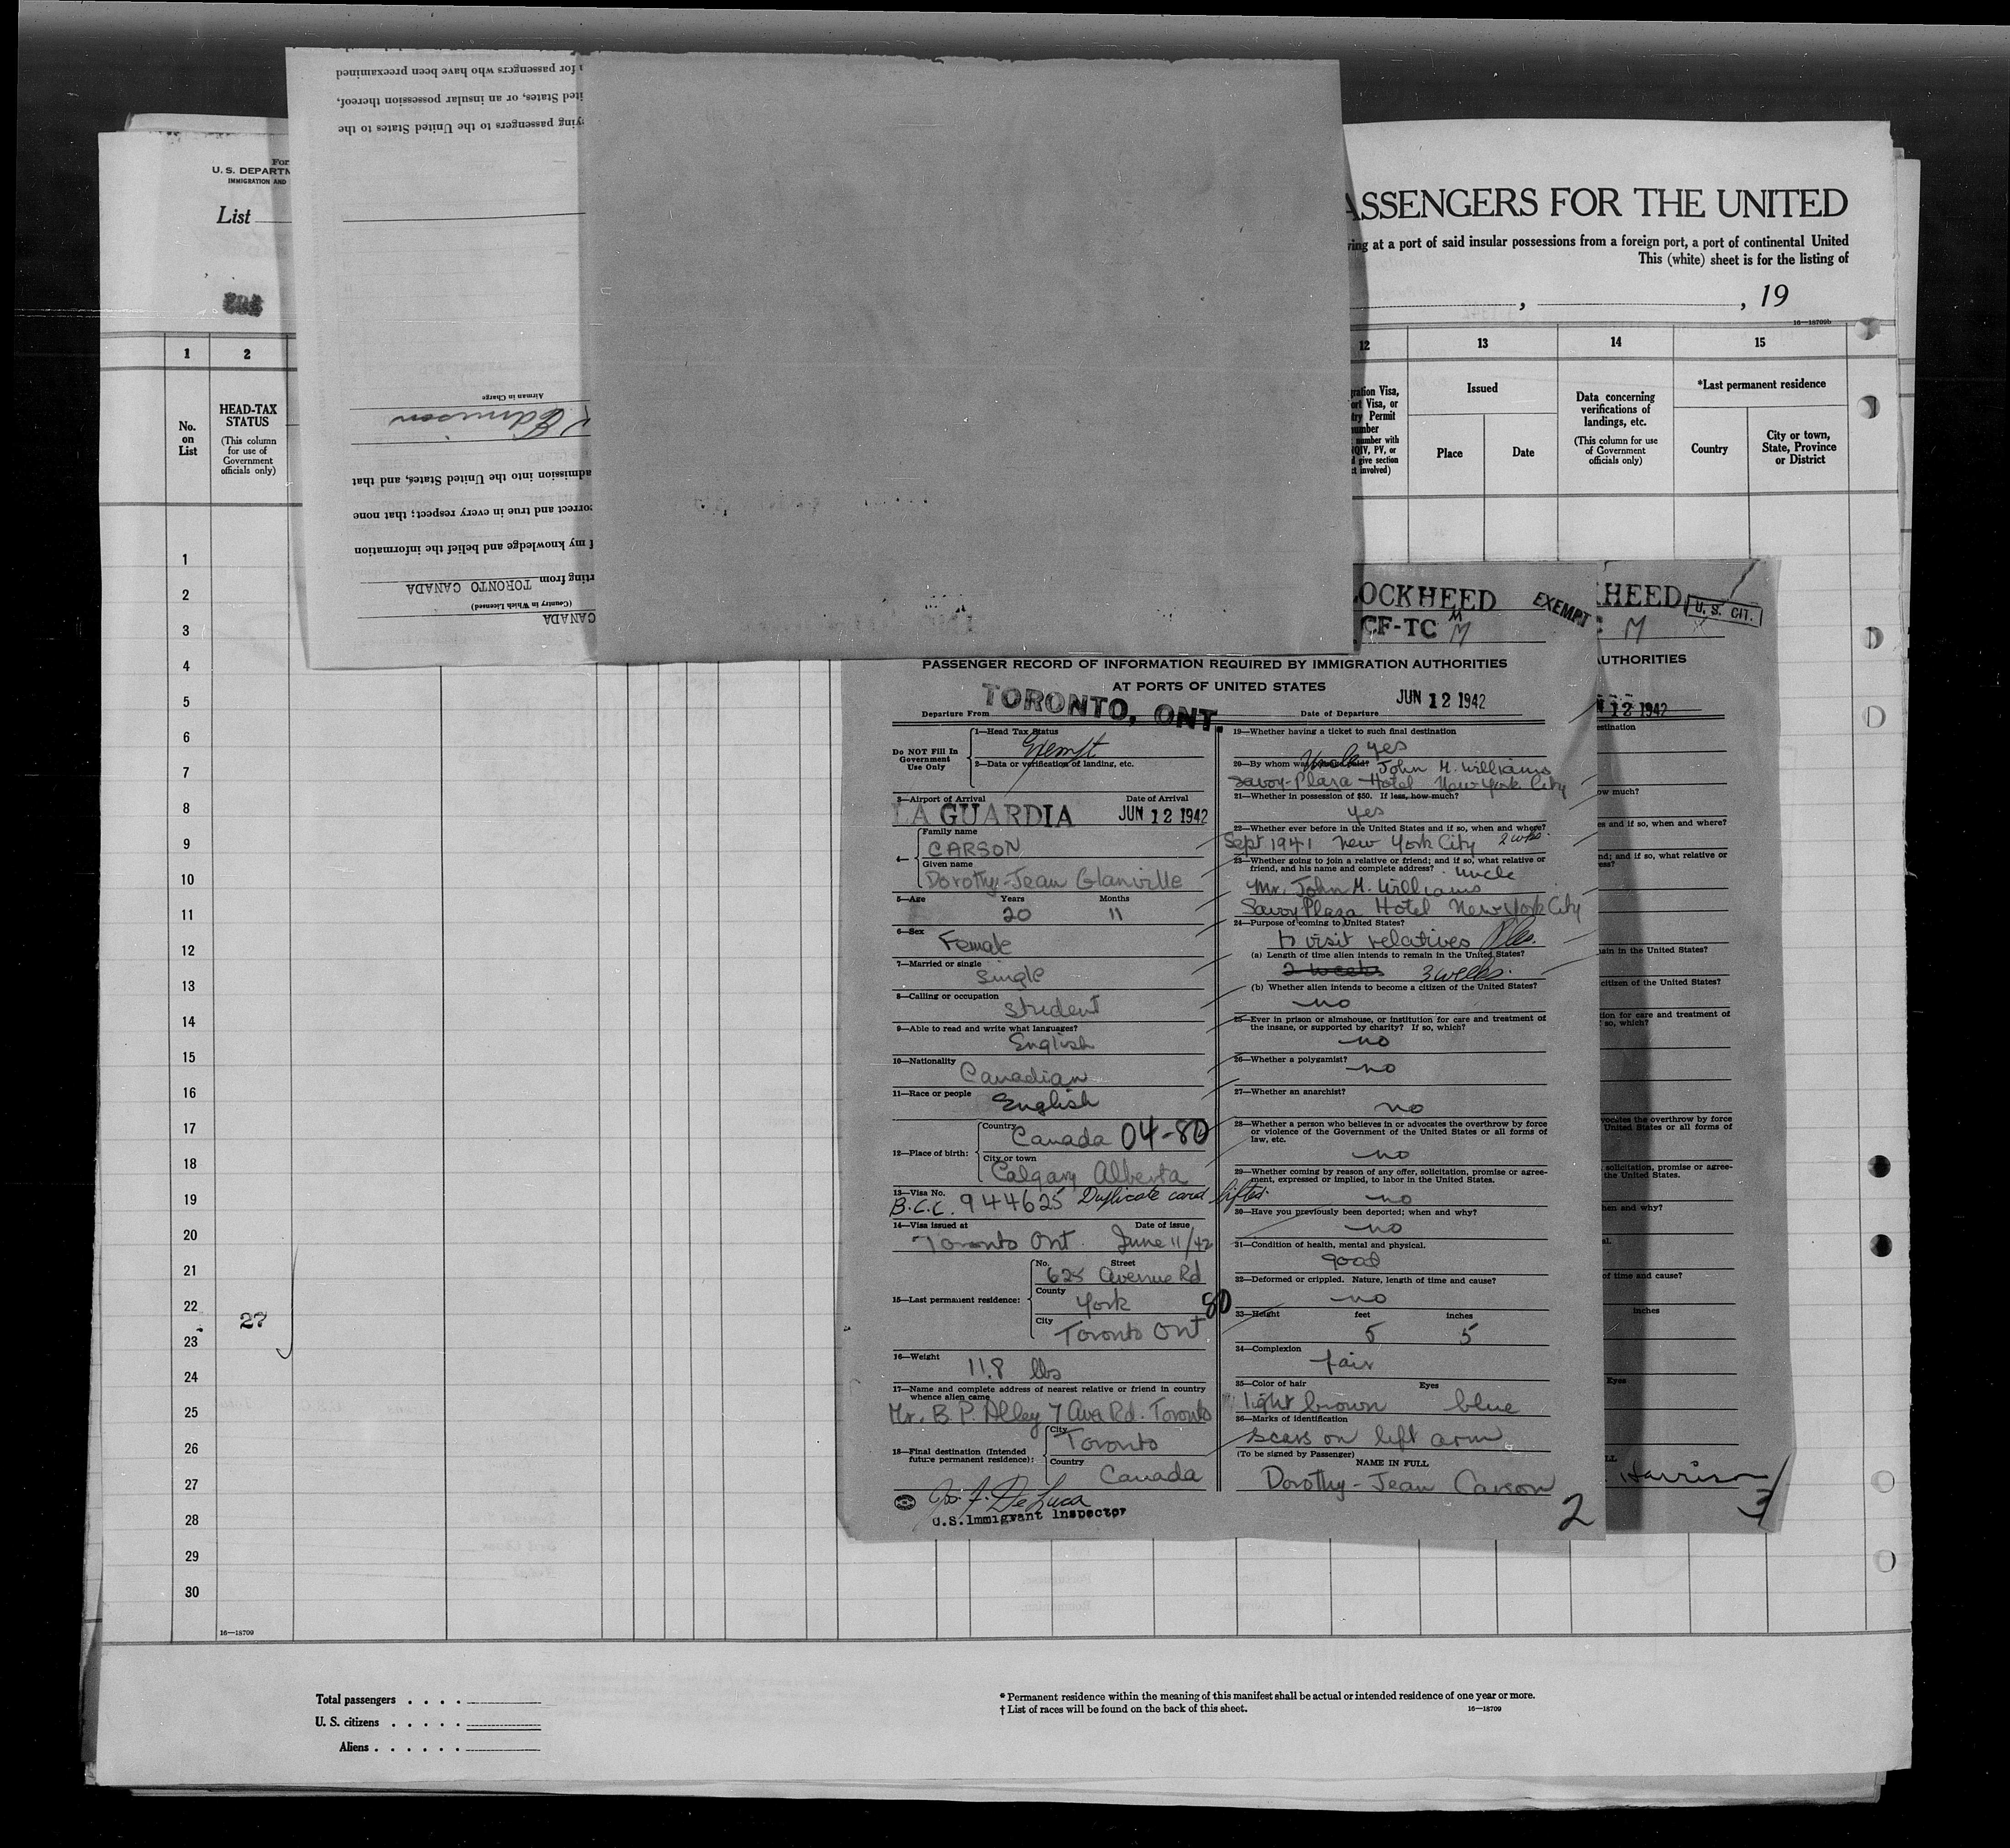 U. S. DEPARTN
IMMIGRATION AND
List
for passengers who have been preexamined
ited States, or an insular possession thereof,
ying passengers to the United States to the
Airman in Charge
admission into the United States, and that
correct and true in every respect; that none
f my knowledge and belief the information
rting from TORONTO CANADA
(Country in Which Licensed)
CANADA
ASSENGERS FOR THE UNITED
ring at a port of said insular possessions from a foreign port, a port of continental United
This (white) sheet is for the listing of
, , 19
16—18709b
1 2 12 13 14 15
No.
on
List
HEAD-TAX
STATUS
(This column
for use of
Government
officials only)
gration Visa,
ort Visa, or
try Permit
number
number with
QIV, PV, or
d give section
t involved)
Issued
Place Date
Data concerning
verifications of
landings, etc.
(This column for use
of Government
officials only)
*Last permanent residence
Country
City or town,
State, Province
or District
1
2
3
4
5
6
7
8
9
10
11
12
13
14
15
16
17
18
19
20
21
22
23
24
25
26
27
28
29
30
27
16—18709
OCKHEED
CF-TC M
M
EXEMPT
PASSENGER RECORD OF INFORMATION REQUIRED BY IMMIGRATION AUTHORITIES
AT PORTS OF UNITED STATES
Departure From TORONTO, ONT. Date of Departure JUN 12 1942
Do NOT Fill In
Government
Use Only
1—Head Tax Status
Exempt
2—Data or verification of landing, etc.
3—Airport of Arrival Date of Arrival
LA GUARDIA JUN 12 1942
4—
Family name
CARSON
Given name
Dorothy-Jean Glanville
5—Age Years Months
20 11
6—Sex
Female
7—Married or single
single
8—Calling or occupation
student
9—Able to read and write what languages?
English
10—Nationality
Canadian
11—Race or people
English
12—Place of birth:
Country
Canada 04-80
City or town
Calgary Alberta
13—Visa No.
B.C.C. 944625 Duplicate card lifted.
14—Visa issued at Date of issue
Toronto Ont. June 11/42
15—Last permanent residence:
No. Street
625 Avenue Rd
County
York 80
City
Toronto Ont
16—Weight
118 lbs
17—Name and complete address of nearest relative or friend in country
whence alien came
Mr. B. P. Alley 7 Ave Rd. Toronto
18—Final destination (Intended
future permanent residence):
City
Toronto
Country
Canada
De Luca
U.S. Immigrant Inspector
19—Whether having a ticket to such final destination
yes
20—By whom was passage paid? Uncle John M. Williams
Savoy-Plaza Hotel New York City
21—Whether in possession of $50. If less, how much?
yes
22—Whether ever before in the United States and if so, when and where?
Sept 1941 New York City 2 wks.
23—Whether going to join a relative or friend; and if so, what relative or
friend, and his name and complete address? Uncle
Mr. John M. Williams
Savoy Plaza Hotel New York City
24—Purpose of coming to United States?
to visit relatives
(a) Length of time alien intends to remain in the United States?
2 weeks 3 weeks.
(b) Whether alien intends to become a citizen of the United States?
no
25—Ever in prison or almshouse, or institution for care and treatment of
the insane, or supported by charity? If so, which?
no
26—Whether a polygamist?
no
27—Whether an anarchist?
no
28—Whether a person who believes in or advocates the overthrow by force
or violence of the Government of the United States or all forms of
law, etc.
no
29—Whether coming by reason of any offer, solicitation, promise or agree-
ment, expressed or implied, to labor in the United States.
no
30—Have you previously been deported; when and why?
no
31—Condition of health, mental and physical.
good
32—Deformed or crippled. Nature, length of time and cause?
no
33—Height feet inches
5 5
34—Complexion
fair
35—Color of hair Eyes
light brown blue
36—Marks of identification
scars on left arm
(To be signed by Passenger)
NAME IN FULL
Dorothy-Jean Carson
2
HEED
U. S. CIT.
M
AUTHORITIES
12 1942
estination
ow much?
es and if so, when and where?
nd; and if so, what relative or
ess?
ain in the United States?
citizen of the United States?
tion for care and treatment of
so, which?
vocates the overthrow by force
United States or all forms of
solicitation, promise or agree-
the United States.
hen and why?
al.
of time and cause?
inches
Eyes
LL
Harrison
3
Total passengers . . . .
U. S. citizens . . . . .
Aliens . . . . . .
* Permanent residence within the meaning of this manifest shall be actual or intended residence of one year or more.
† List of races will be found on the back of this sheet. 16—18709